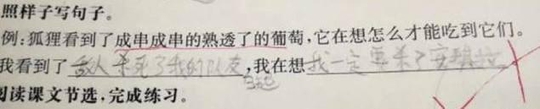 照样子写句子。
例:狐狸看到了成串成串的熟透了的葡萄,它在想怎么才能吃到它们。
我看到了敌人杀死了我的队友,我在想我一定要杀了安琪拉
阅读课文节选,完成练习。